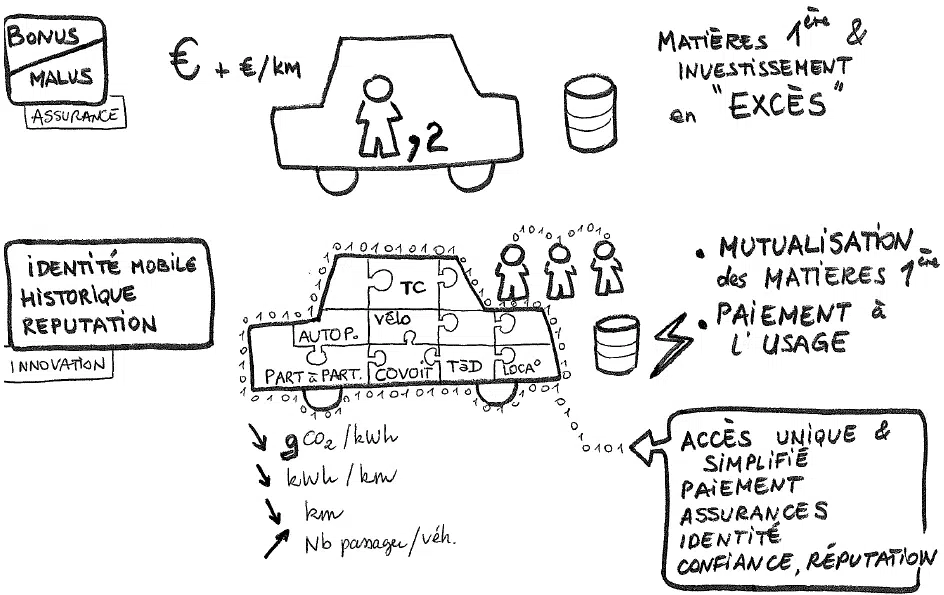 BONUS
MALUS
ASSURANCE
€ + €/km
,2
MATIÈRES 1ère &
INVESTISSEMENT
en "EXCÈS"
IDENTITÉ MOBILE
HISTORIQUE
REPUTATION
INNOVATION
0101010101
TC
Vélo
AUTOP.
PART à PART.
COVOIT
TàD
LOCA°
• MUTUALISATION
des MATIERES 1ère
• PAIEMENT à
L'USAGE
↘ gCO2/kWh
↘ kWh/km
↘ km
↗ Nb passager/véh.
0101
ACCÈS UNIQUE &
SIMPLIFIÉ
PAIEMENT
ASSURANCES
IDENTITÉ
CONFIANCE, RÉPUTATION